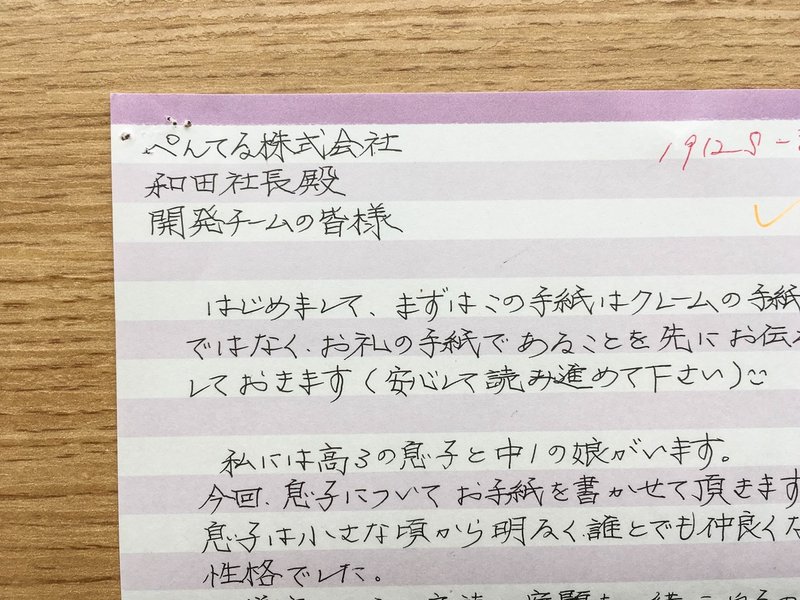 ぺんてる株式会社
1912S-
和田社長殿
開発チームの皆様
はじめまして、まずはこの手紙はクレームの手紙
ではなく、お礼の手紙であることを先にお伝え
しておきます(安心して読み進めて下さい)☺
私には高3の息子と中1の娘がいます。
今回、息子についてお手紙を書かせて頂きます
息子は小さな頃から明るく、誰とでも仲良くな
性格でした。